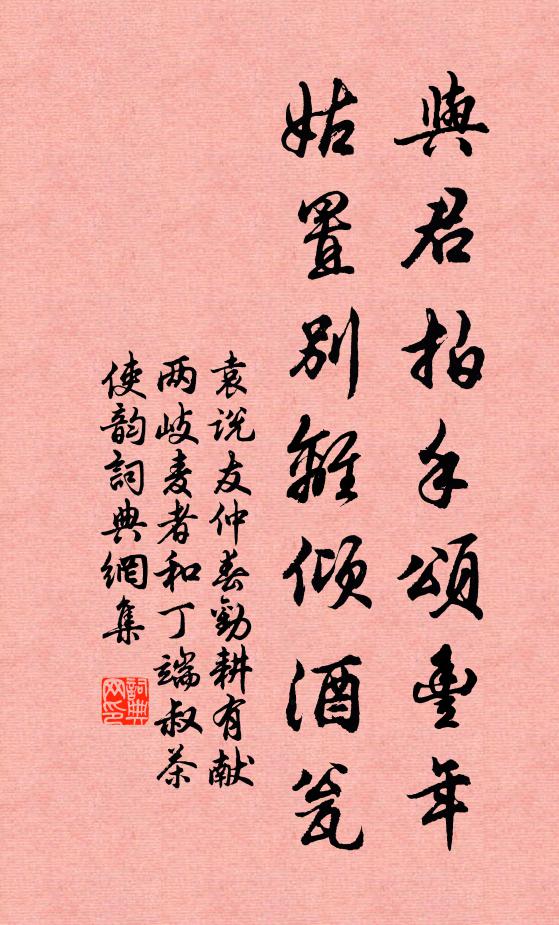 與君拍手頌豐年
姑置別離傾酒瓮
袁说友仲春勸耕有献
两岐麦者和丁端叔茶
使韵詞典網集
詞典网印